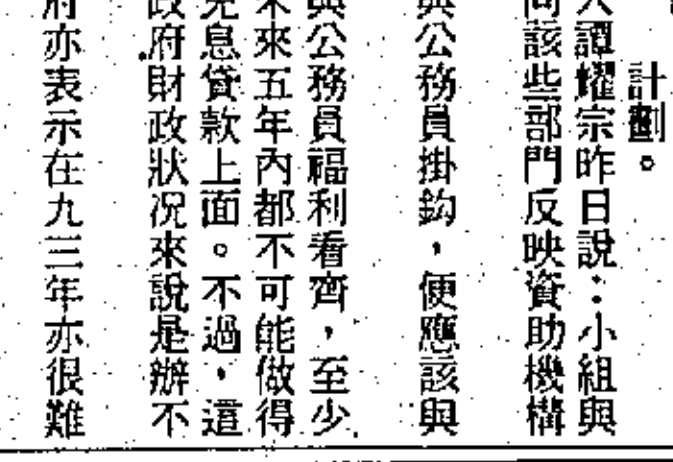 計劃。
譚耀宗昨日說：小組與
該些部門反映資助機構
公務員掛鈎，便應該與
公務員福利看齊，至少
來五年內都不可能做得
息貸款上面。不過，這
府財政狀況來說是辦不
亦表示在九三年亦很難